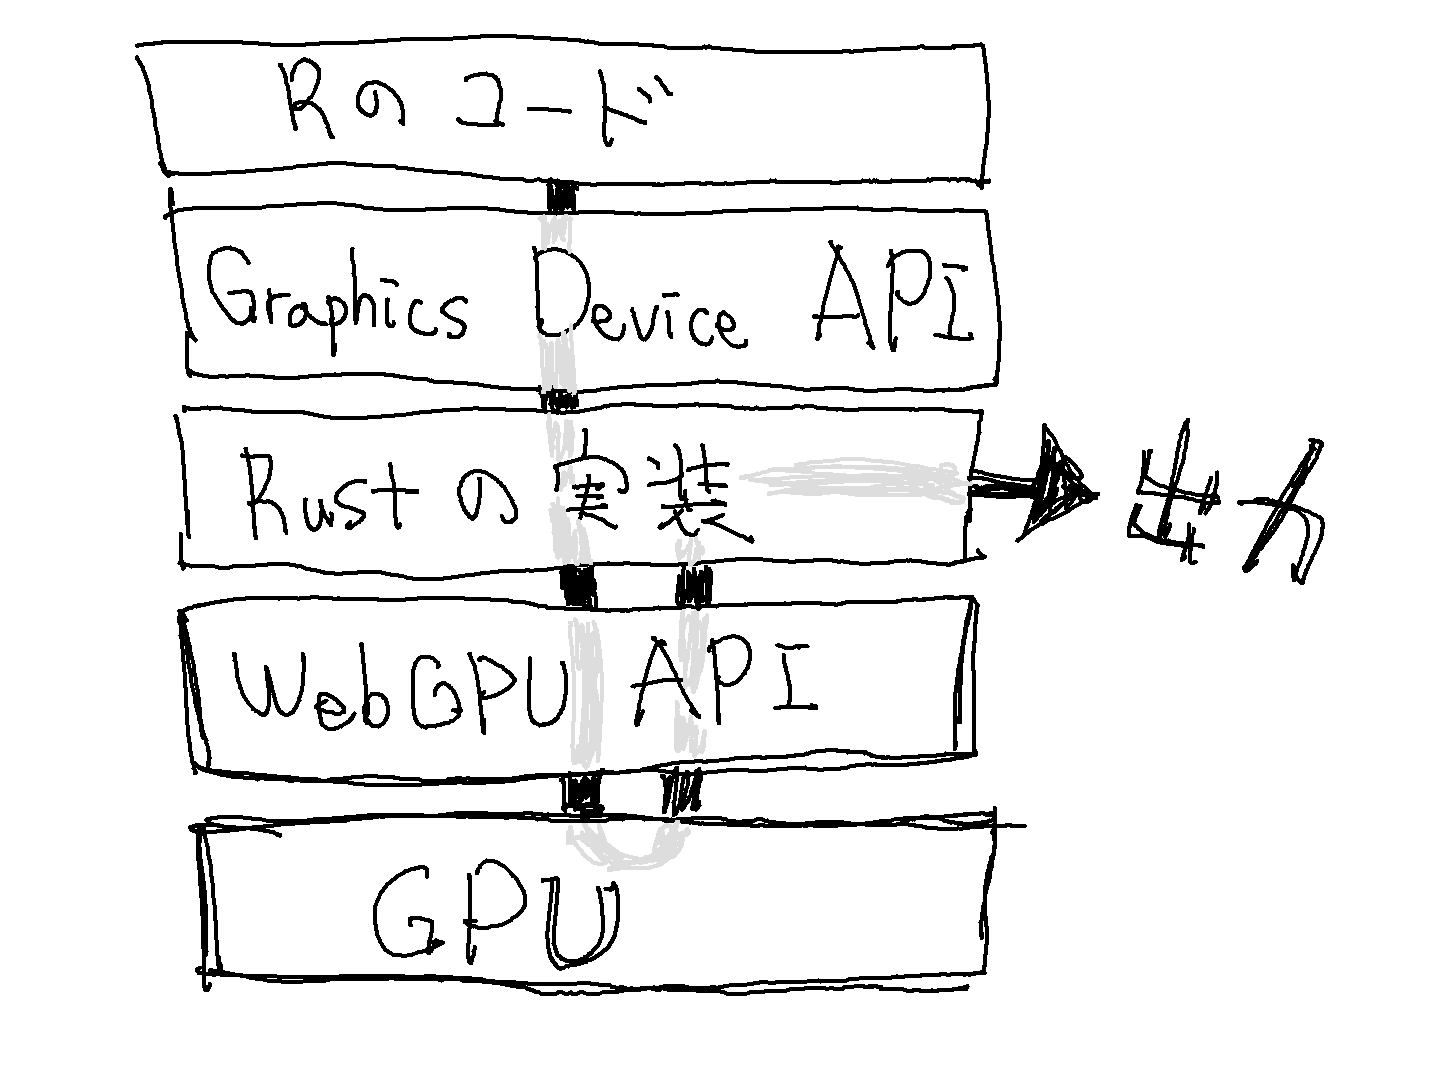 Rのコード
Graphics Device API
Rustの実装
出力
WebGPU API
GPU